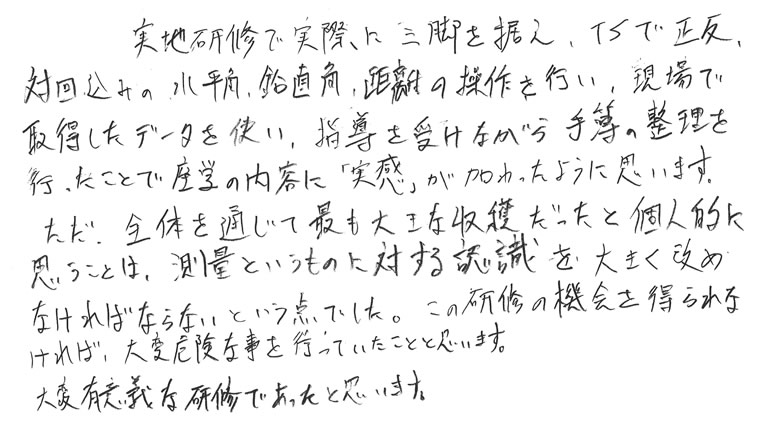 実地研修で実際に三脚を据え、TSで正反、
対回込みの水平角、鉛直角、距離の操作を行い、現場で
取得したデータを使い、指導を受けながら手簿の整理を
行ったことで座学の内容に「実感」が加わったように思います。
ただ、全体を通じて最も大きな収穫だったと個人的に
思うことは、測量というものに対する認識を大きく改め
なければならないという点でした。この研修の機会を得られな
ければ、大変危険な事を行っていたことと思います。
大変有意義な研修であったと思います。